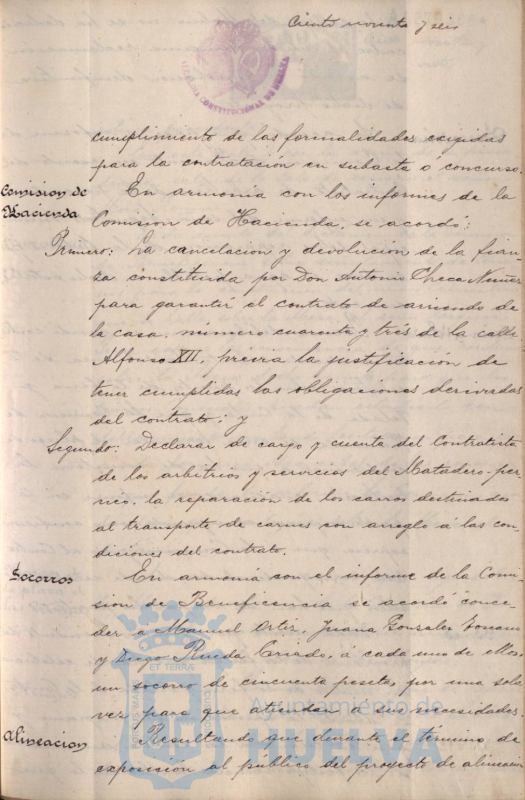 Ciento noventa y seis
ALCALDIA CONSTITUCIONAL DE HUELVA
cumplimiento de las formalidades exigidas
para la contratación en subasta ó concurso.
Comision de
Hacienda
En armonía con los informes de la
Comision de Hacienda, se acordó:
Primero: La cancelacion y devolucion de la fian-
za constituida por Don Antonio Checa Nuñez
para garantir el contrato de arriendo de
la casa, número cuarenta y trés de la calle
Alfonso XII, prévia la justificación de
tener cumplidas las obligaciones derivadas
del contrato; y
Segundo: Declarar de cargo y cuenta del Contratista
de los arbitrios y servicios del Matadero
la reparación de los carros destinados
al transporte de carnes con arreglo á las con-
diciones del contrato.
Socorros
En armonía con el informe de la Comi-
sion de Beneficencia se acordó conce-
der a Manuel Ortiz, Juana Gonzalez
y Diego Rueda Criado, á cada uno de ellos,
un socorro de cincuenta pesetas, por una sola
vez, para que atiendan a sus necesidades.
Alineacion
Resultando que durante el término de
exposición al público del proyecto de alineación
Ayuntamiento de
HUELVA